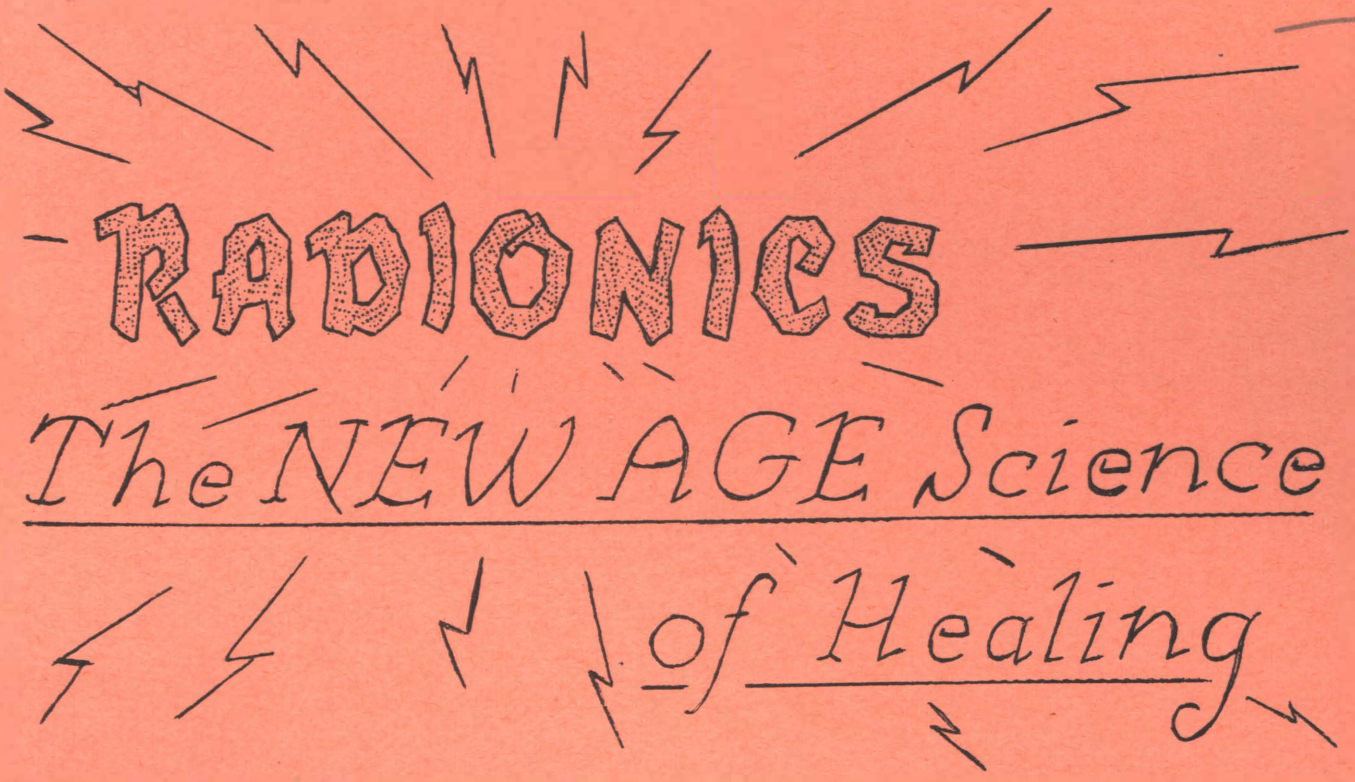 RADIONICS
The NEW AGE Science
of Healing